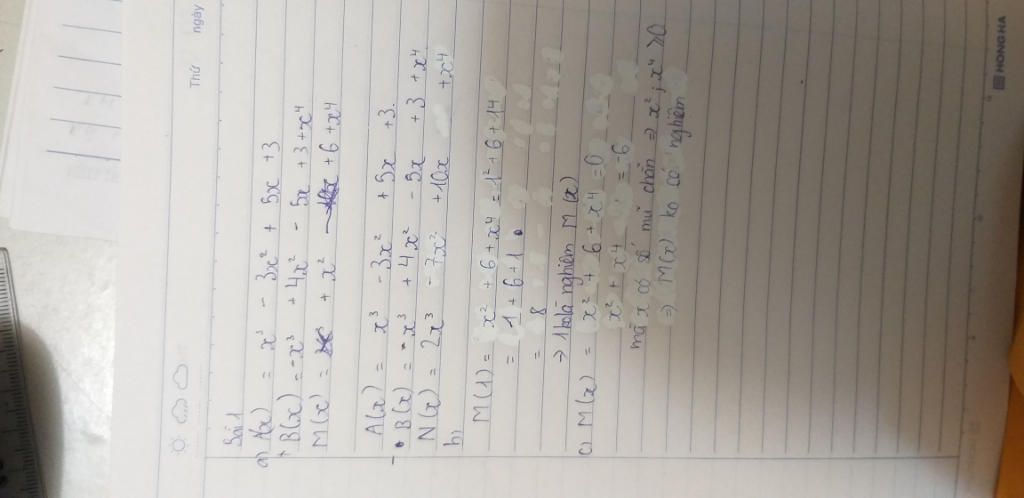 Thứ ngày
Bài 1
a) A(x) = x³ - 3x² + 5x + 3
+ B(x) = -x³ + 4x² - 5x + 3 + x⁴
M(x) = + x² + 6 + x⁴
A(x) = x³ - 3x² + 5x + 3.
- B(x) = -x³ + 4x² - 5x + 3 + x⁴
N(x) = 2x³ - 7x² + 10x + x⁴
b)
M(1) = x² + 6 + x⁴ = 1² + 6 + 1⁴
= 1 + 6 + 1
= 8
→ 1 ko là nghiệm M(x)
c) M(x) = x² + 6 + x⁴ = 0
x² + x⁴ = -6
mà x có số mũ chẵn ⇒ x² ; x⁴ ≥ 0
⇒ M(x) ko có nghiệm
HONG HA